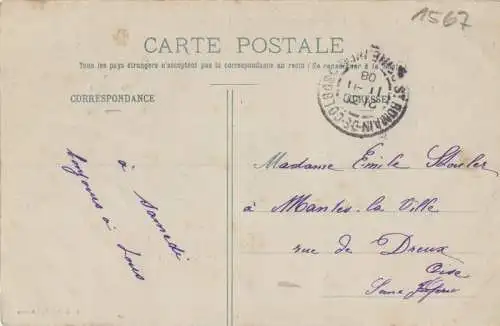 1567
CARTE POSTALE
Tous les pays étrangers n'acceptent pas la correspondance au recto (Se renseigner à la
CORRESPONDANCE
ADRESSE
ST ROMAIN-DE-COLBOSC
21 30
11 -11
08
à Samedi
toujours à vous
Madame Emile
à Mantes-la-Ville
rue de Dreux
Oise
Seine